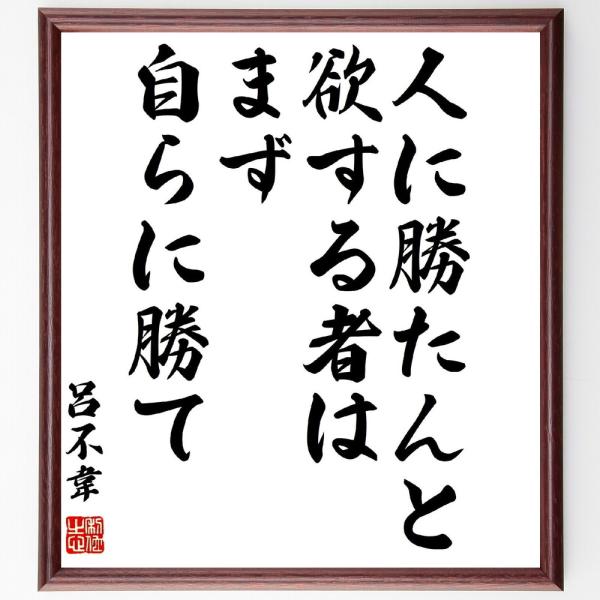 人に勝たんと
欲する者は
まず
自らに勝て
呂不韋